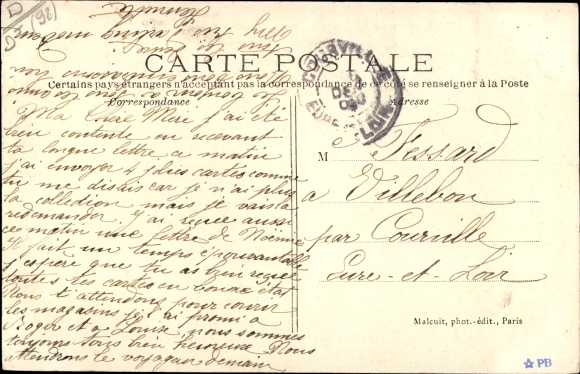 D
G (92)
CARTE POSTALE
Certains pays étrangers n'acceptant pas la correspondance de ce côté se renseigner à la Poste
Correspondance
Adresse
Ma Chère Mère j'ai été
bien contente en recevant
ta longue lettre ce matin
j'ai envoyer 4 plus cartes comme
tu me disais car je n'ai plus
la collection mais je vais la
redemander. J'ai reçue aussi
ce matin une lettre de Noémie
il fait un temps épouvantable
j'espère que tu as bien reçue
toutes tes cartes en bonne état
Nous t'attendons pour courir
les magasins j'ai promi a
Roger et a Louise nous sommes
toujours tous bien heureuse Nous
attendrons le voyageur demain
Henriette
M Fessard
a Villebon
par Courville
Eure-et-Loir
COURVILLE
EURE-ET-LOIR
Malcuit, phot.-édit., Paris
PB